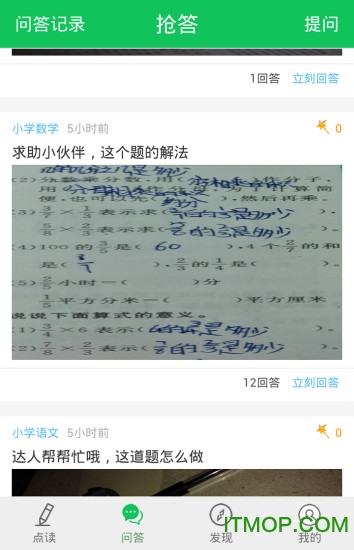 问答记录
抢答
提问
1回答
立刻回答
小学数学
5小时前
0
求助小伙伴，这个题的解法
(2)分数乘分数，用(
)作分子，
用(
便，也可以先(
)，然后再乘。
(3) 3/7 × 1/3 表示求(
)。
5/8 × 2/3 表示求(
)。
(4)100 的 3/5 是( 60 )，4 个 2/7 的和
是(
)，2/3 的 1/4 是(
)。
(5) 2/5 小时＝(
)分
1/5 平方分米＝(
)平方厘米
说说下面算式的意义。
(1) 3/4 × 6 表示(
)。
(2) 7/8 × 2/3 表示(
)。
12回答
立刻回答
小学语文
5小时前
0
达人帮帮忙哦，这道题怎么做
点读
问答
发现
我的
ITMOP.COM